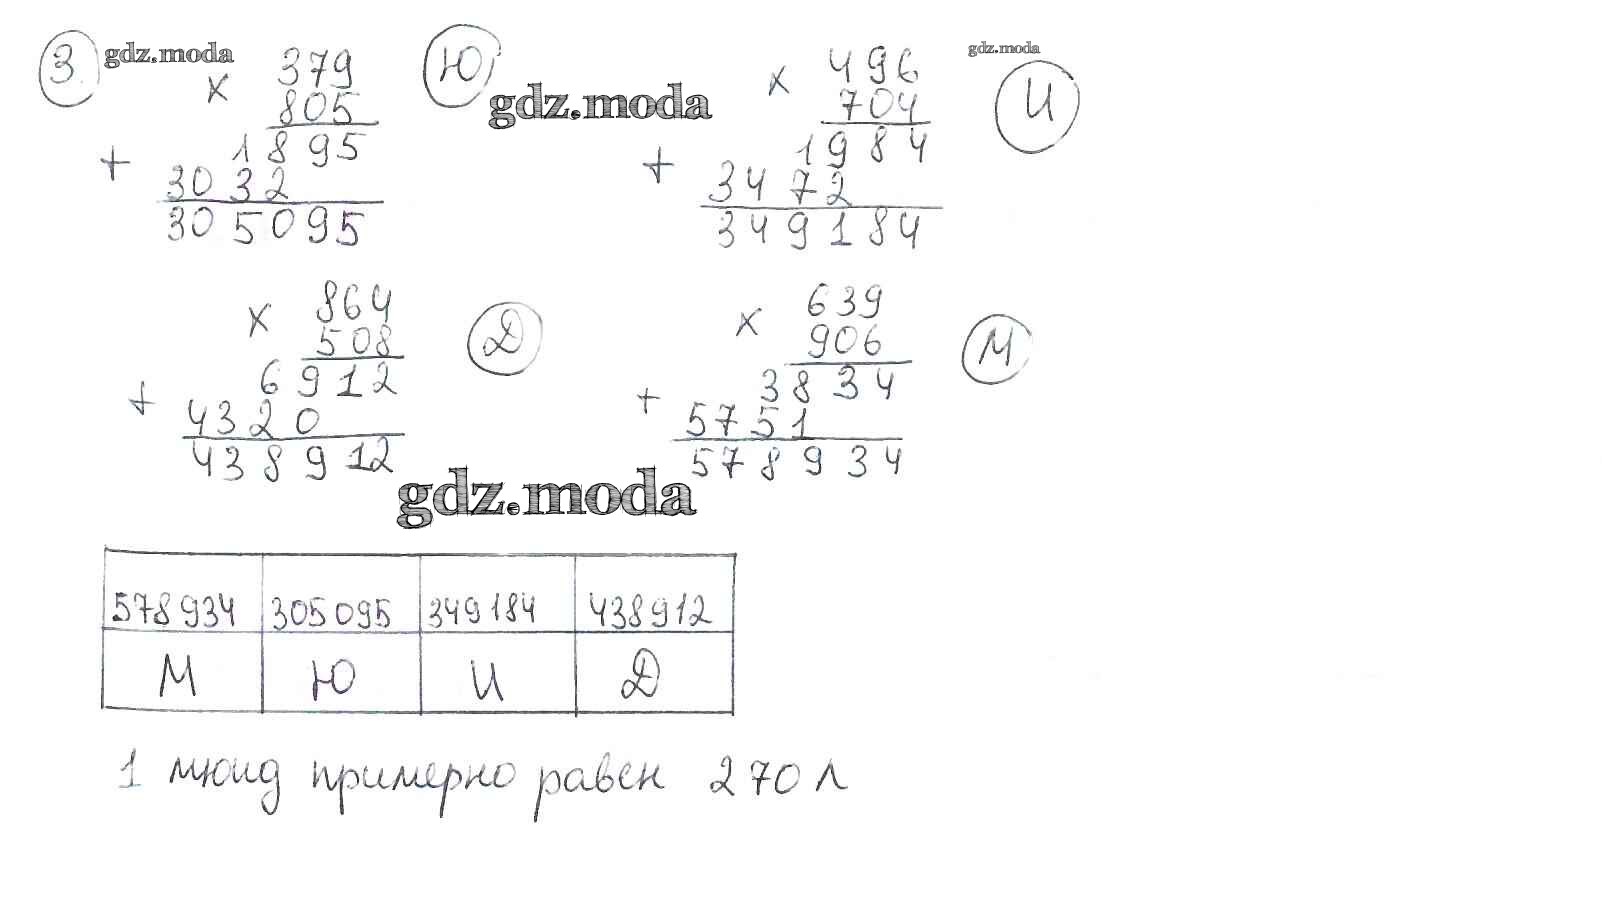 3. gdz.moda
× 379
805
1895
+ 3032
305095
Ю
gdz.moda
× 496
704
1984
+ 3472
349184
И
gdz.moda
× 864
508
6912
+ 4320
438912
Д
× 639
906
3834
+ 5751
578934
М
gdz.moda
578934 305095 349184 438912
М Ю И Д
1 мюид примерно равен 270 л